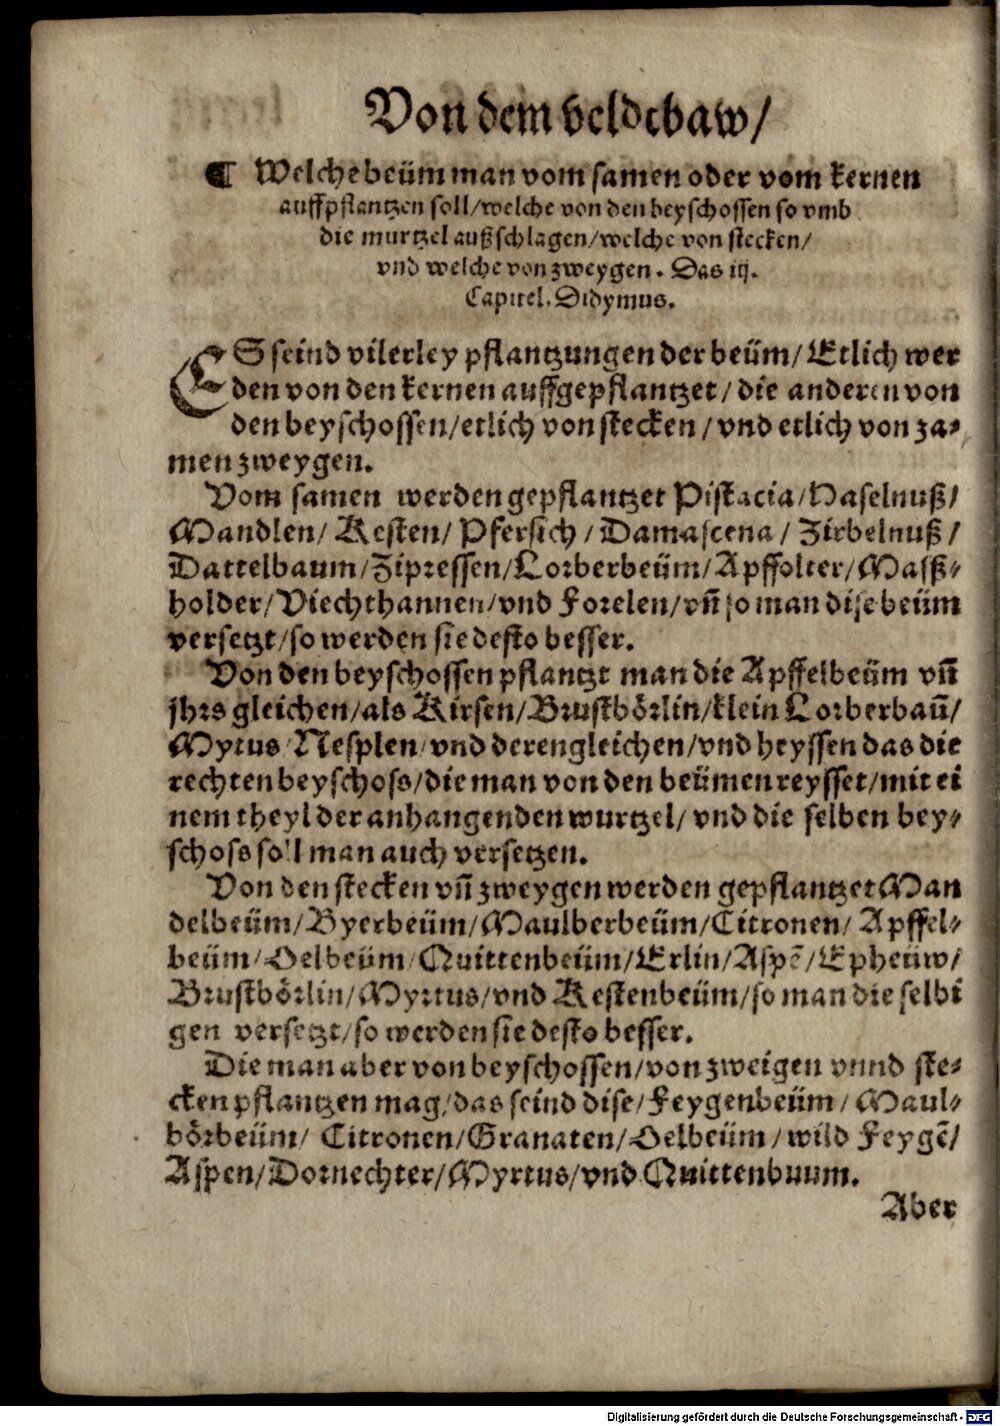 Von dem veldebaw/
¶ Welche beüm man vom samen oder vom kernen
auffpflantzen soll/welche von den beyschossen so vmb
die wurtzel außschlagen/welche von stecken/
vnd welche von zweygen. Das iij.
Capitel. Didymus.
ES seind vilerley pflantzungen der beüm/Etlich wer
den von den kernen auffgepflantzet/die anderen von
den beyschossen/etlich von stecken/vnd etlich von za⸗
men zweygen.
Vom samen werden gepflantzet Pistacia/Haselnuß/
Mandlen/Kesten/Pfersich/Damascena/Zirbelnuß/
Dattelbaum/Zipressen/Lorberbeüm/Apffolter/Maß⸗
holder/Viechthannen/vnd Forelen/vñ so man dise beüm
versetzt/so werden sie desto besser.
Von den beyschossen pflantzt man die Apffelbeüm vñ
jhrs gleichen/als Kirsen/Brustbörlin/klein Lorberbaũ/
Myrtus/Nesplen/vnd derengleichen/vnd heyssen das die
rechten beyschoss/die man von den beümen reysset/mit ei
nem theyl der anhangenden wurtzel/vnd die selben bey⸗
schoss soll man auch versetzen.
Von den stecken vñ zweygen werden gepflantzet Man
delbeüm/Byerbeüm/Maulberbeüm/Citronen/Apffel⸗
beüm/Oelbeüm/Quittenbeüm/Erlin/Aspẽ/Epheüw/
Brustbörlin/Myrtus/vnd Kestenbeüm/so man die selbi
gen versetzt/so werden sie desto besser.
Die man aber von beyschossen/von zweigen vnnd ste⸗
cken pflantzen mag/das seind dise/Feygenbeüm/Maul⸗
börbeüm/Citronen/Granaten/Oelbeüm/wild Feygẽ/
Aspen/Dornechter/Myrtus/vnd Quittenbuum.
Aber
Digitalisierung gefördert durch die Deutsche Forschungsgemeinschaft - DFG